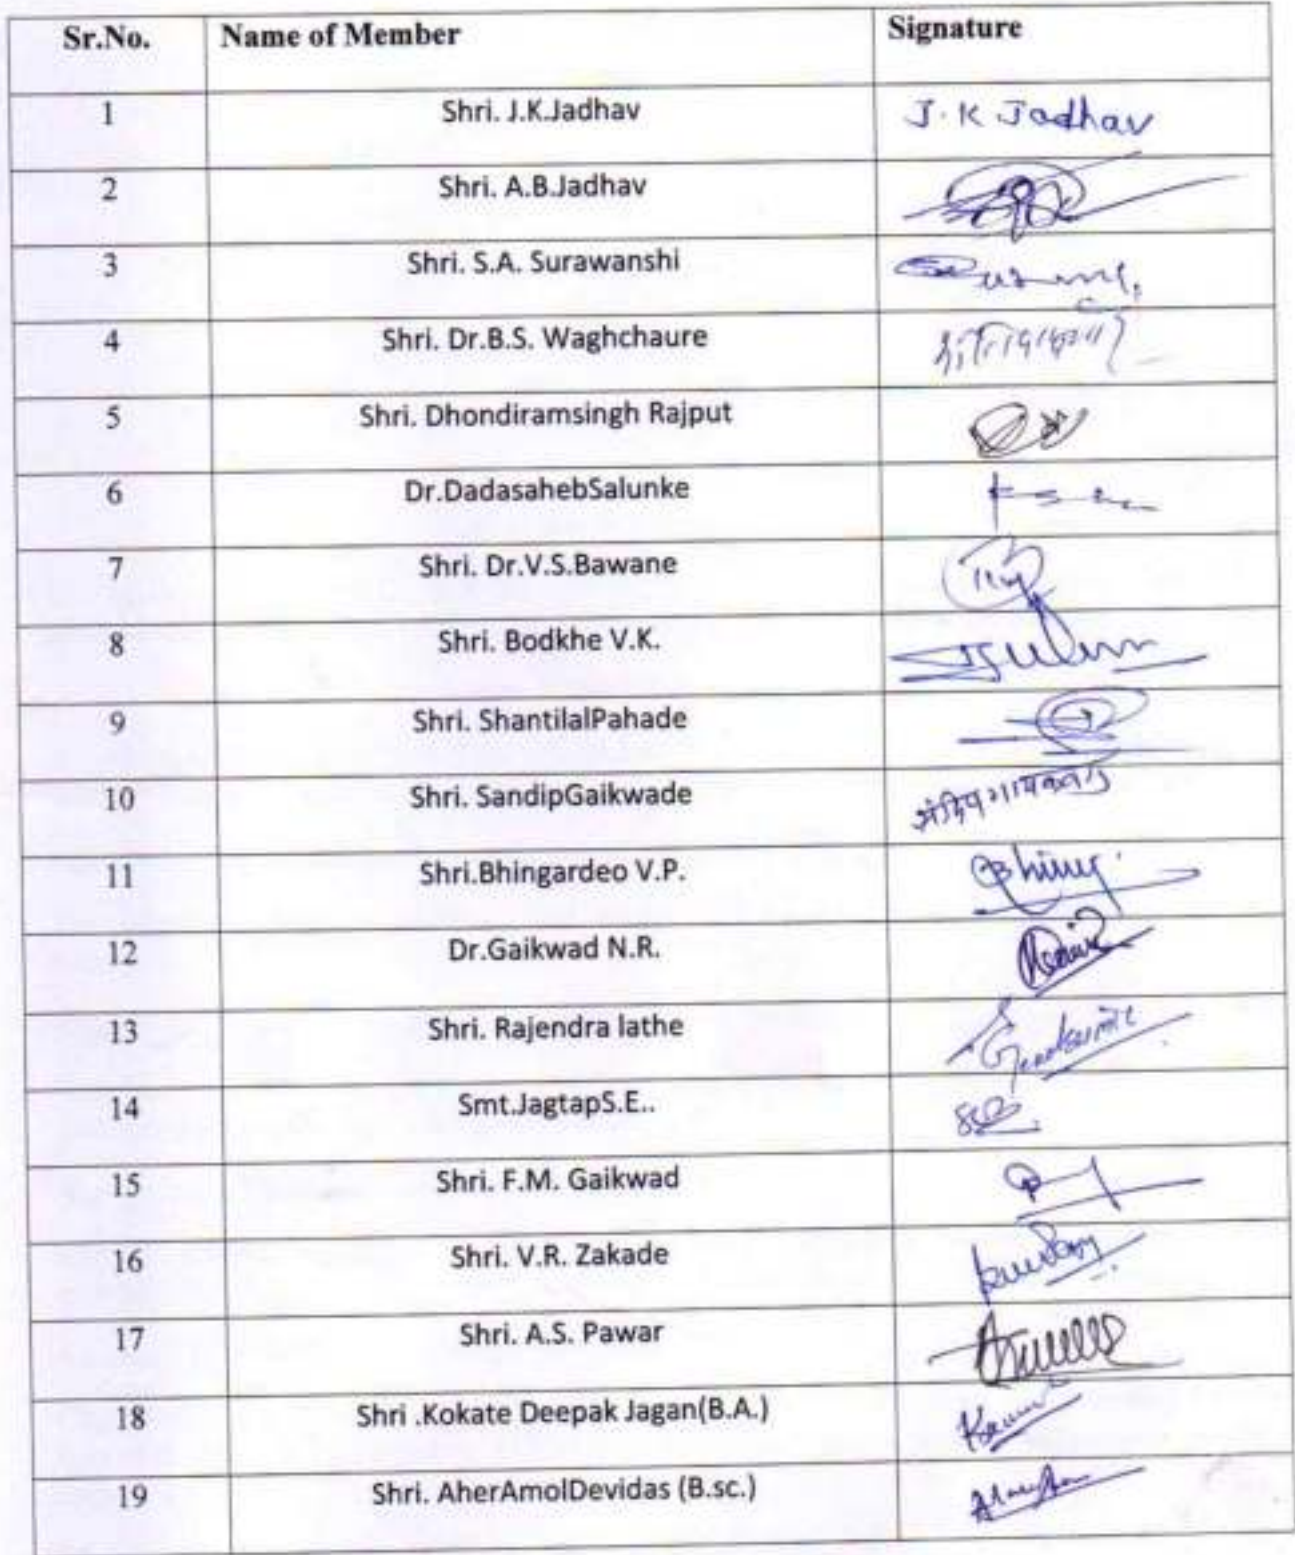 Sr.No. Name of Member Signature
1 Shri. J.K.Jadhav J.K Jadhav
2 Shri. A.B.Jadhav
3 Shri. S.A. Surawanshi
4 Shri. Dr.B.S. Waghchaure
5 Shri. Dhondiramsingh Rajput
6 Dr.DadasahebSalunke
7 Shri. Dr.V.S.Bawane
8 Shri. Bodkhe V.K.
9 Shri. ShantilalPahade
10 Shri. SandipGaikwade संदिप गायकवाड
11 Shri.Bhingardeo V.P.
12 Dr.Gaikwad N.R.
13 Shri. Rajendra lathe
14 Smt.JagtapS.E..
15 Shri. F.M. Gaikwad
16 Shri. V.R. Zakade
17 Shri. A.S. Pawar
18 Shri .Kokate Deepak Jagan(B.A.)
19 Shri. AherAmolDevidas (B.sc.)